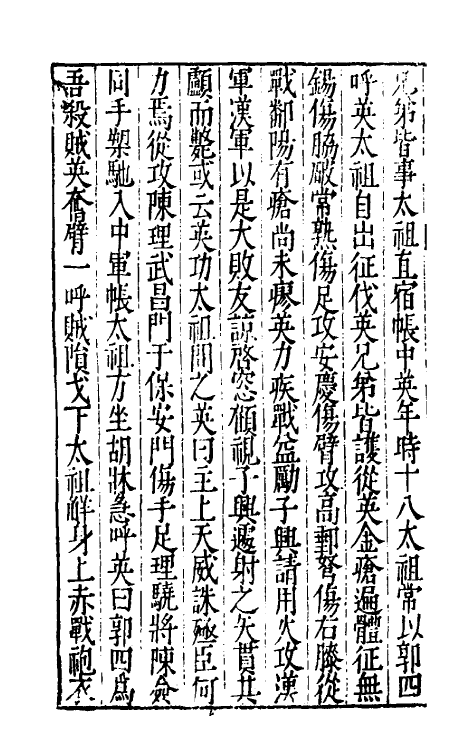 兄弟皆事太祖直宿帳中英年時十八太祖常以郭四
呼英太祖自出征伐英兄弟皆護從英金瘡遍體征無
錫傷脇殿常熟傷足攻安慶傷臂攻高郵弩傷右膝從
戰鄱陽有瘡尚未瘳英力疾戰益勵子興請用火攻漢
軍漢軍以是大敗友諒啓窓顧視子興遽射之矢貫其
顱而斃或云英功太祖問之英曰主上天威誅殛臣何
力焉從攻陳理武昌門于保安門傷手足理驍將陳僉
同手槊馳入中軍帳太祖方坐胡牀急呼英曰郭四爲
吾殺賊英奮臂一呼賊隕戈下太祖解身上赤戰袍衣